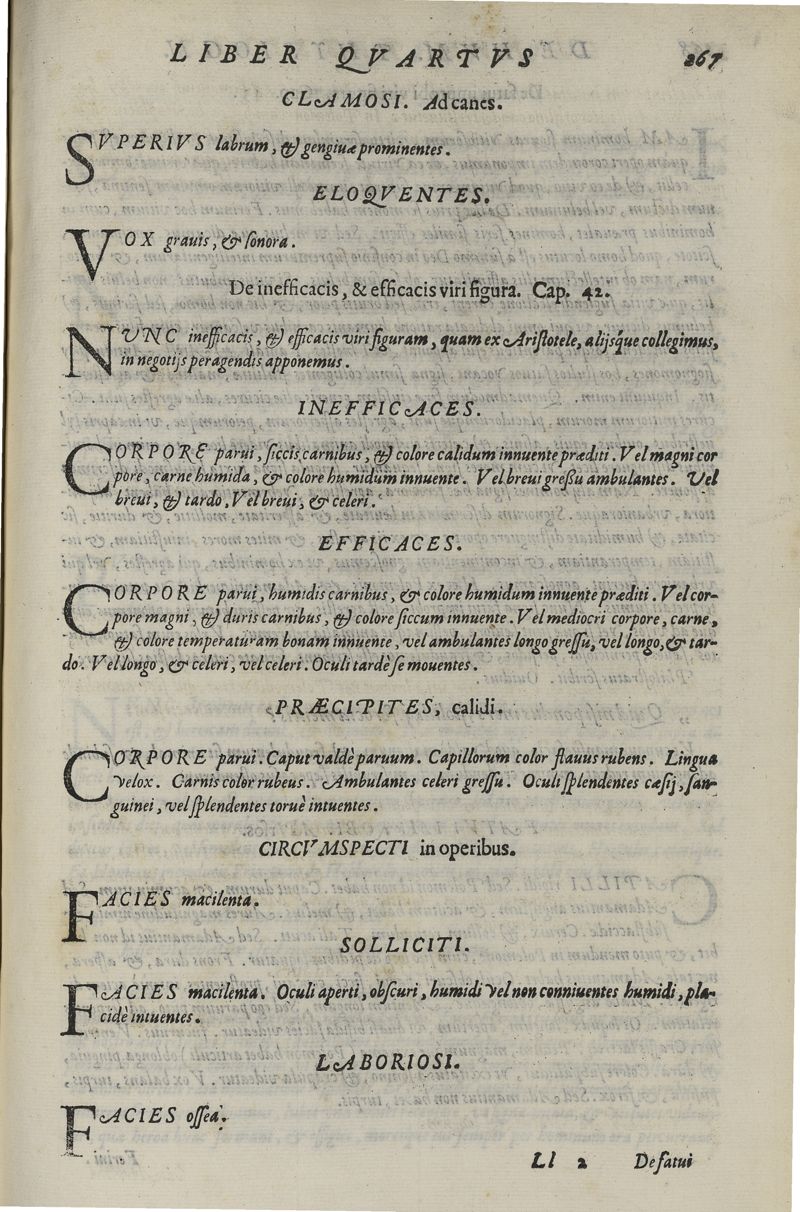 LIBER QVARTVS 267
CLAMOSI. Ad canes.
SVPERIVS labrum, & gengiuæ prominentes.
ELOQVENTES.
VOX grauis, & ſonora.
De inefficacis, & efficacis viri figura. Cap. 42.
NVNC inefficacis, & efficacis viri figuram, quam ex Ariſtotele, alijsque collegimus,
in negotijs peragendis apponemus.
INEFFICACES.
CORPORE parui, ſiccis carnibus, & colore calidum innuente præditi. Vel magni cor
pore, carne humida, & colore humidum innuente. Vel breui greſſu ambulantes. Vel
breui, & tardo, Vel breui, & celeri.
EFFICACES.
CORPORE parui, humidis carnibus, & colore humidum innuente præditi. Vel cor-
pore magni, & duris carnibus, & colore ſiccum innuente. Vel mediocri corpore, carne,
& colore temperaturam bonam innuente, vel ambulantes longo greſſu, vel longo, & tar-
do. Vel longo, & celeri, vel celeri. Oculi tardè ſe mouentes.
PRÆCIPITES, calidi.
CORPORE parui. Caput valdè paruum. Capillorum color flauus rubens. Lingua
velox. Carnis color rubeus. Ambulantes celeri greſſu. Oculi ſplendentes cæſij, ſan-
guinei, vel ſplendentes toruè intuentes.
CIRCVMSPECTI in operibus.
FACIES macilenta.
SOLLICITI.
FACIES macilenta. Oculi aperti, obſcuri, humidi vel non conniuentes humidi, pla-
cidè intuentes.
LABORIOSI.
FACIES oſſea.
Ll 2 De fatui